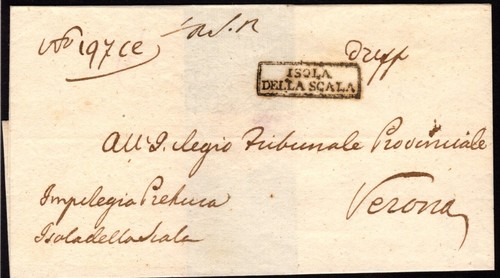 No 197 ce
ISOLA
DELLA SCALA
All' I. Regio Tribunale Provinciale
Imp. Regia Pretura
Verona
Isola della Scala